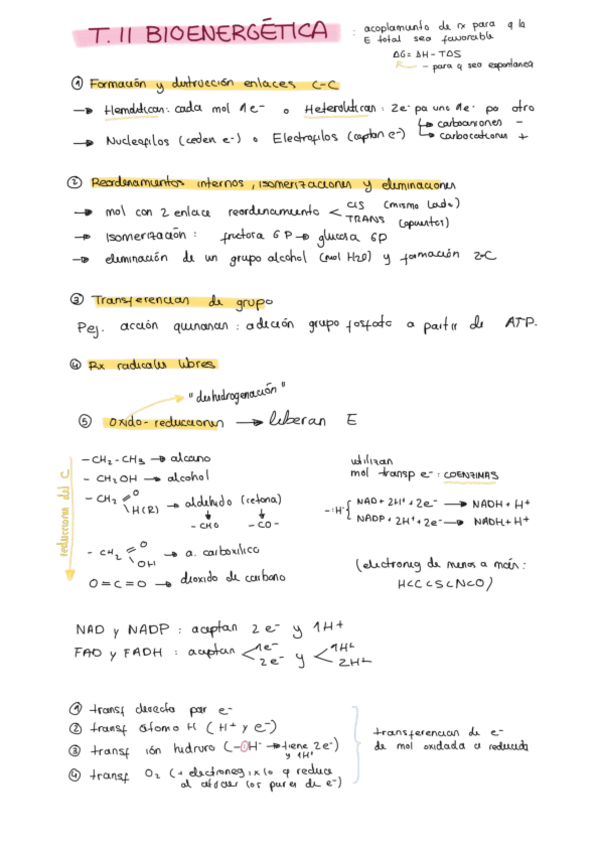 T. 11 BIOENERGÉTICA
: acoplamiento de rx para q la
E total sea favorable
ΔG = ΔH - TΔS
- para q sea espontanea
① Formación y destrucción enlaces C-C
→ Hemolíticas: cada mol 1e⁻ o Heterolíticas: 2e⁻ pa uno 1e⁻ pa otro
→ Nucleófilos (ceden e⁻) o Electrófilos (captan e⁻)
↳ carboaniones -
↳ carbocationes +
② Reordenamientos internos, isomerizaciones y eliminaciones
→ mol con 2 enlace reordenamiento < CIS (mismo lado)
TRANS (opuestos)
→ Isomerización: fructora 6P → glucosa 6P
→ eliminación de un grupo alcohol (mol H2O) y formación 2=C
③ Transferencias de grupo
Pej. acción quinasas: adición grupo fosfato a partir de ATP.
④ Rx radicales libres
"deshidrogenación"
⑤ Oxido-reducciones → liberan E
reducciones del C
-CH₂-CH₃ → alcano
-CH₂OH → alcohol
-CH₂ =O \H(R) → aldehído (cetona)
-CHO -CO-
-CH₂ =O OH → a. carboxílico
O=C=O → dioxido de carbono
utilizan
mol transp e⁻: COENZIMAS
-:H⁻ { NAD + 2H⁺ + 2e⁻ → NADH + H⁺
NADP + 2H⁺ + 2e⁻ → NADH + H⁺
(electroneg de menos a más:
H<C<S<N<O)
NAD y NADP: aceptan 2e⁻ y 1H+
FAO y FADH: aceptan < 1e⁻ 2e⁻ y < 1H+ 2H+
① transf directa par e⁻
② transf átomo H (H⁺ y e⁻)
③ transf ión hidruro (-OH⁻ → tiene 2e⁻)
y 1H⁺
④ transf O₂ (+ electroneg, x lo q reduce
al atraer los pares de e⁻)
transferencias de e⁻
de mol oxidada a reducida